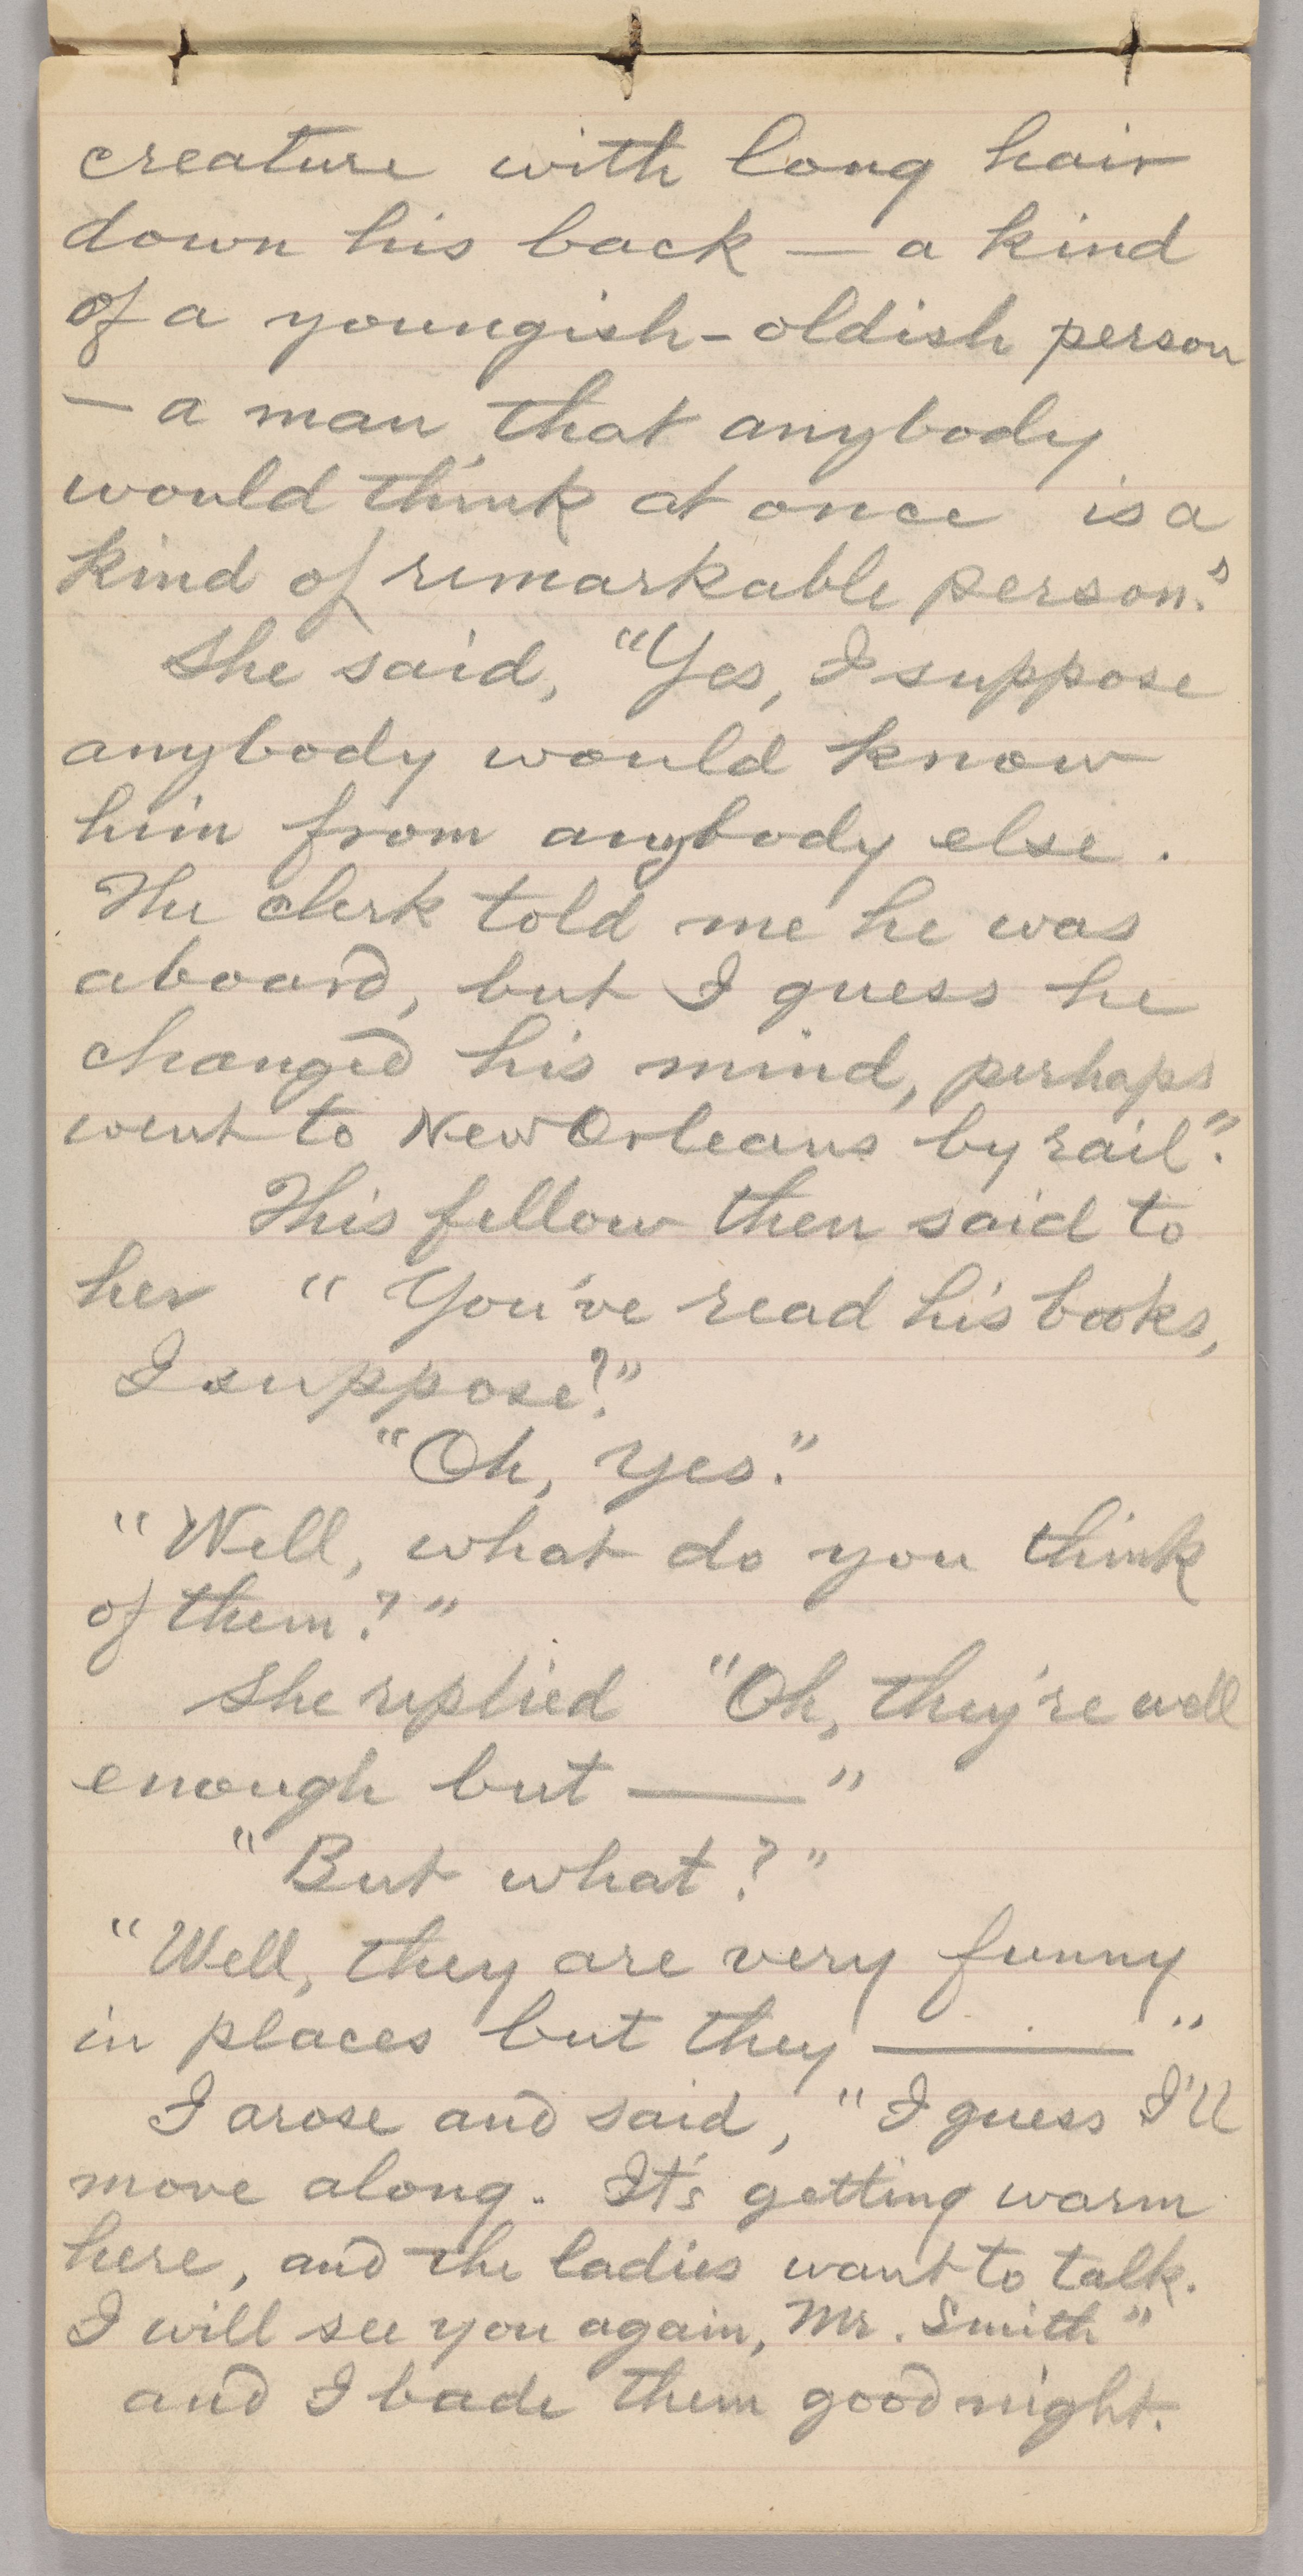 creature with long hair
down his back — a kind
of a youngish-oldish person
— a man that anybody
would think at once is a
kind of remarkable person."
She said, "Yes, I suppose
anybody would know
him from anybody else.
The clerk told me he was
aboard, but I guess he
changed his mind, perhaps
went to New Orleans by rail".
This fellow then said to
her " You've read his books,
I suppose?"
"Oh, yes."
"Well, what do you think
of them?"
She replied "Oh, they're well
enough but —— "
"But what?"
"Well, they are very funny
in places but they ——— "
I arose and said, "I guess I'll
move along. It's getting warm
here, and the ladies want to talk.
I will see you again, Mr. Smith"
and I bade them good night.